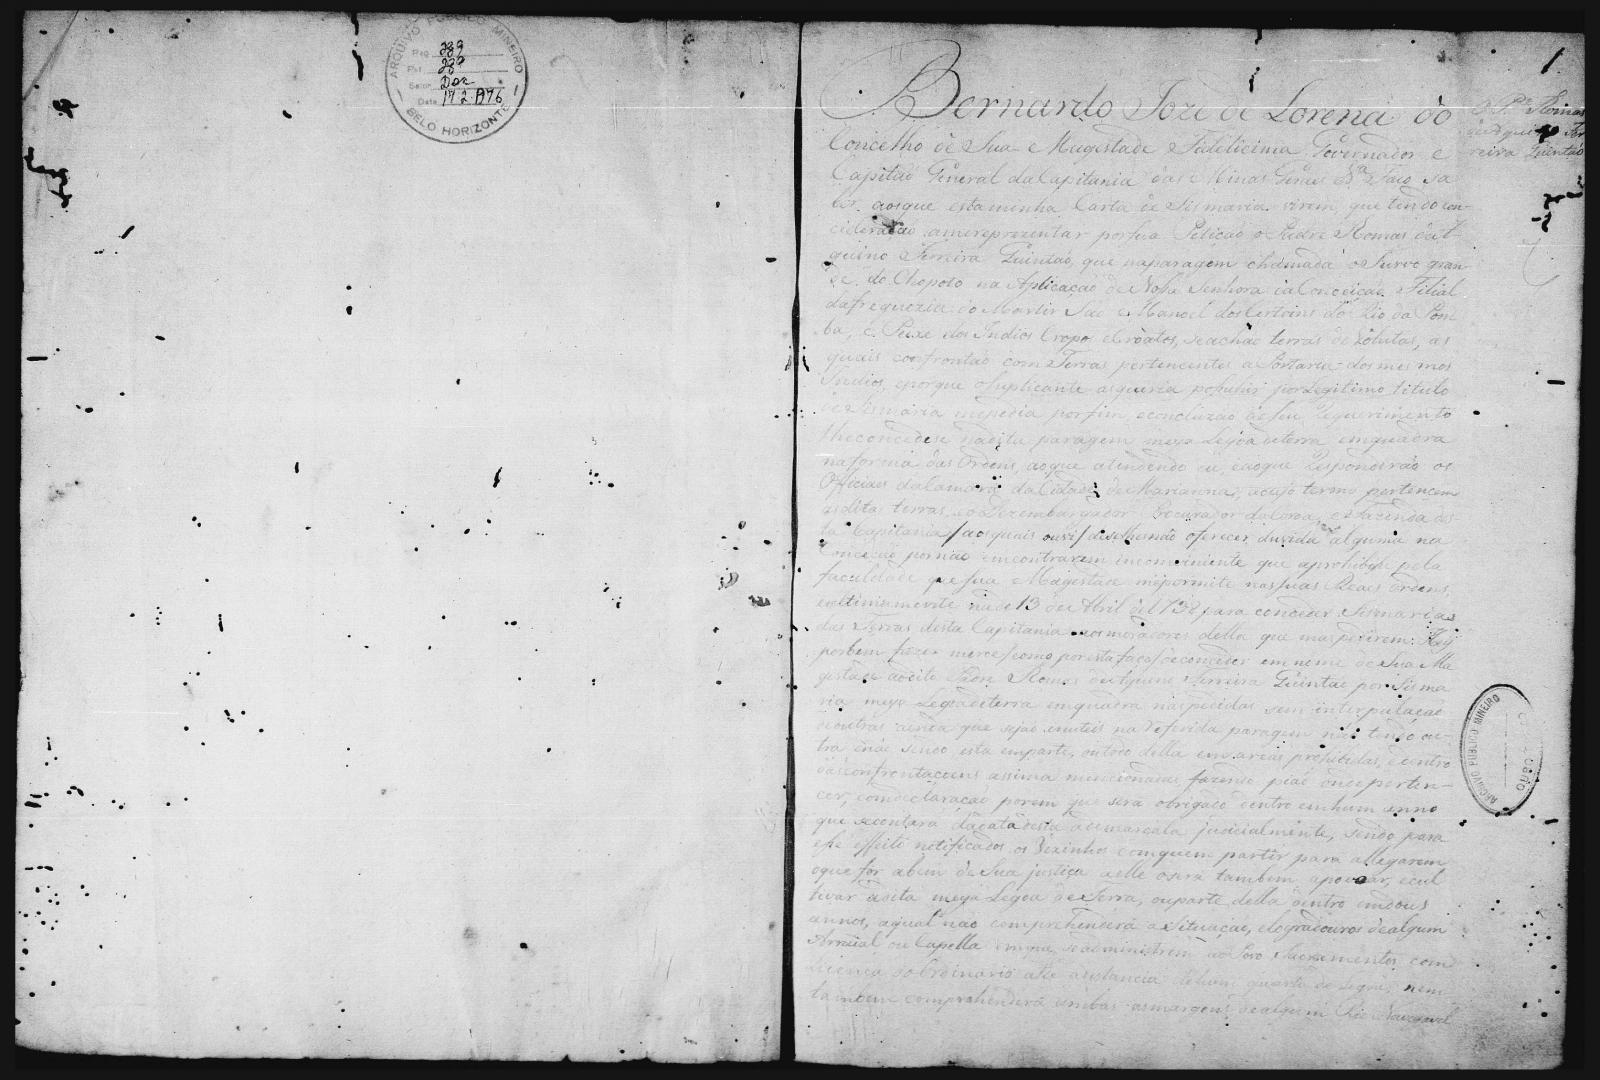 ARQUIVO PUBLICO MINEIRO
Reg. 289
Pst.
Setor Doc
Data 17.2.1976
BELO HORIZONTE
1
Bernardo Joze de Lorena do
Concelho de Sua Magestade Fidelicima Governador e
Capitão General da Capitania das Minas Geraes &a Faço sa
ber aosque esta minha Carta de Sismaria virem que tendo con-
cideração ame reprezentar por sua Petição o Padre Romas de A-
quino Ferreira Quintão, que na paragem chamada o Turvo gran-
de do Chopoto na Aplicação de Nosa Senhora da Conceição Filial
da freguezia do Martir São Manoel dos Certoins do Rio da Pom
ba, e Peixe dos Indios Cropo e Croatos, se achão terras devolutas, as
quais confrontão com Terras pertencentes a Portaria dos mesmos
Indios, eporque o Suplicante as queria posuhir por Legitimo titulo
de Sismaria mepedia por fim, econcluzão de seu Requerimento
lhe concedese nadita paragem meya Legoa de terra em quadra
na forma das Ordens, aoque atendendo eu, eaoque Responderão os
Officiaes da Camara da Cidade de Marianna, acujo termo pertencem
asditas terras, eo Dezembargador Procurador da Coroa, e Fazenda des
ta Capitania /aosquais ouvi/ deselhes não oferecer duvida alguma na
Conceção por não encontrarem inconviniente que aprohibise pela
faculdade que Sua Magestade mepermite nas suas Reaes Ordens,
eultimamente nade 13 de Abril de 1738 para conceder Sesmarias
das Terras desta Capitania aos moradores della que mas pedirem: Hey
por bem fazer merce /como por esta faço/ de conceder em nome de Sua Ma
gestade aodito Padre Romas de Aquino Ferreira Quintão por Sisma
ria meya Legoa de terra em quadra nas pedidas sem interpulação
de outras ainda que sejão inuteis na referida paragem não tendo ou-
tra e não sendo esta emparte, ou todo della em areas prohibidas, e dentro
das confrontaçoens assima mencionadas fazendo pião onde perten-
cer, com declaração porem que será obrigado dentro em hum anno
que secontará da data desta a demarcala judicialmente, sendo para
ese effeito notificados os Vezinhos comquem partir para allegarem
oque for abem de Sua justiça a elle o será tambem apovoar, ecul
tivar adita meya Legoa de Terra, ouparte della dentro emdous
annos, aqual não comprehenderá a Situação, elogradouros de algum
Arraial ou Capella emque se administrem ao Povo Sacramentos com
Licença do Ordinario athe a distancia de hum quarto de Legoa, nem
tambem comprehenderá ambas as margens de algum Rio Navegavel
O Pe. Romas
de Aquino Fer
reira Quintão
ARCHIVO PUBLICO MINEIRO